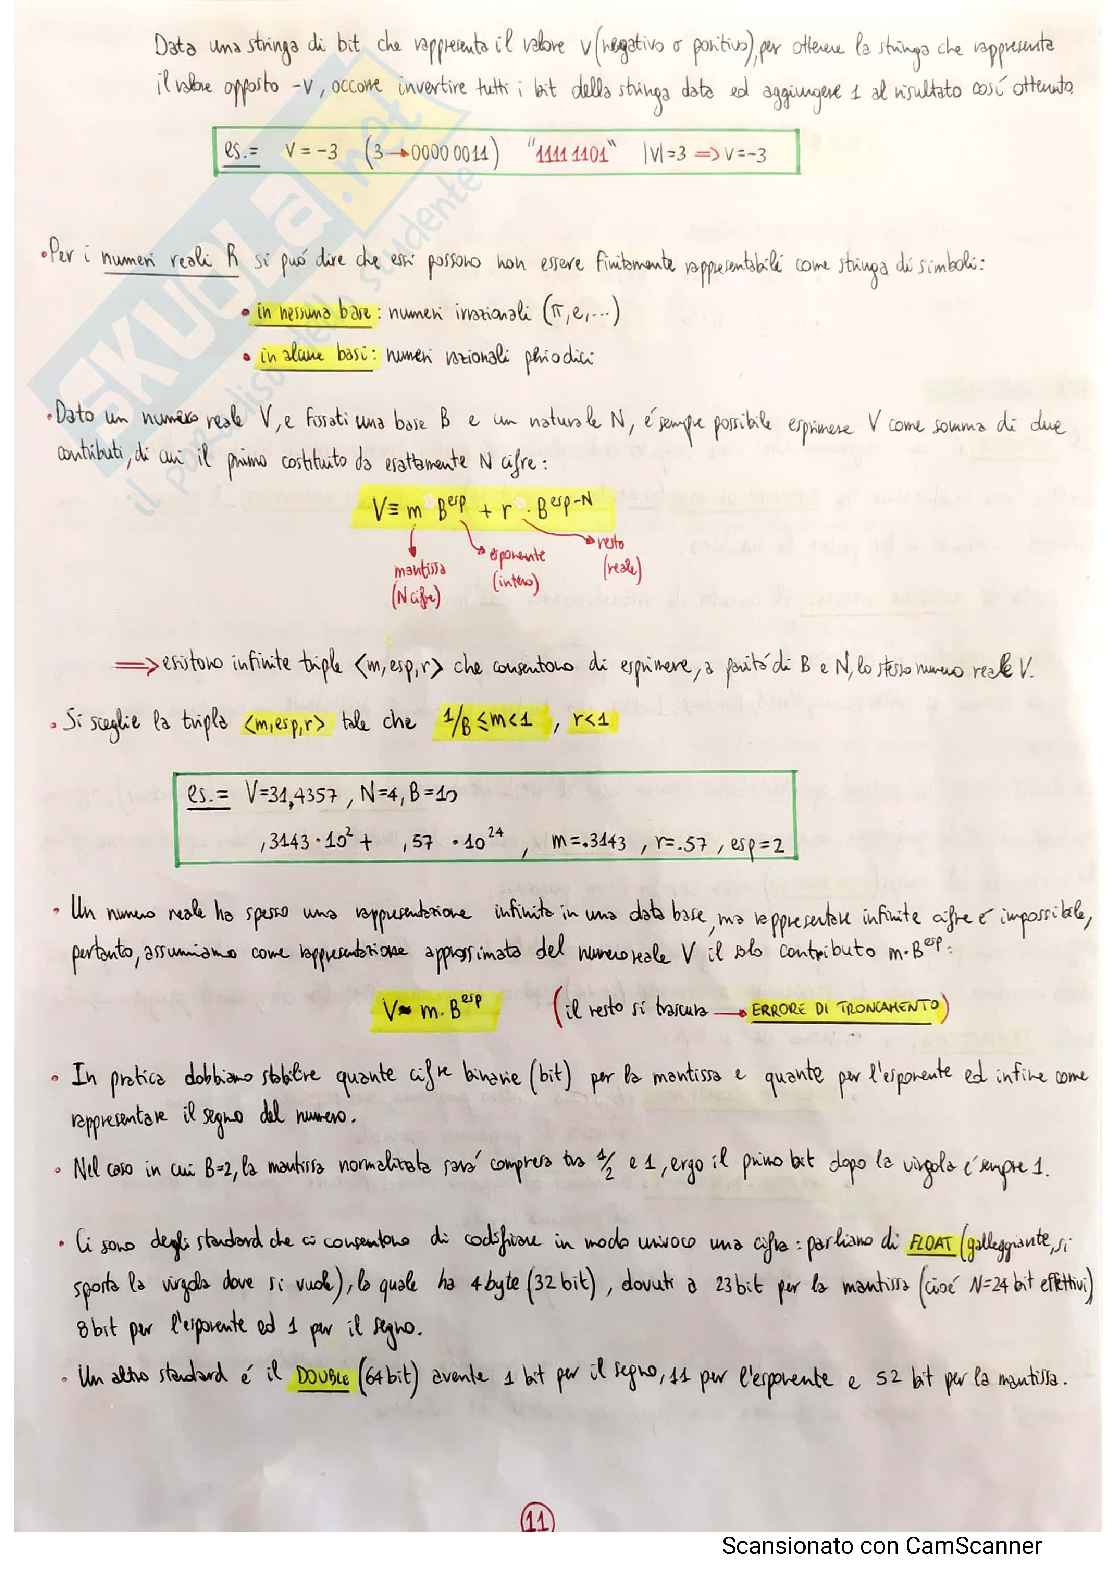 Data una stringa di bit che rappresenta il valore v (negativo o positivo), per ottenere la stringa che rappresenta
il valore opposto -v, occorre invertire tutti i bit della stringa data ed aggiungere 1 al risultato così ottenuto.
es.= V=-3 (3→00000011) "11111101" |V|=3 ⇒ V=-3
•Per i numeri reali R si può dire che essi possono non essere finitamente rappresentabili come stringa di simboli:
• in nessuna base: numeri irrazionali (π, e, ...)
• in alcune basi: numeri razionali periodici
•Dato un numero reale V, e fissati una base B e un naturale N, é sempre possibile esprimere V come somma di due
contributi, di cui il primo costituito da esattamente N cifre:
V≡ m B^esp + r · B^esp-N
mantissa
(N cifre)
esponente
(intero)
resto
(reale)
⇒ esistono infinite triple <m,esp,r> che consentono di esprimere, a parità di B e N, lo stesso numero reale V.
• Si sceglie la tripla <m,esp,r> tale che 1/B ≤m<1 , r<1
es.= V=31,4357 , N=4, B=10
,3143 · 10² + ,57 · 10^24 , m=.3143 , r=.57 , esp=2
• Un numero reale ha spesso una rappresentazione infinita in una data base, ma rappresentare infinite cifre é impossibile,
pertanto, assumiamo come rappresentazione approssimata del numero reale V il solo contributo m·B^esp:
V≈ m·B^esp (il resto si trascura → ERRORE DI TRONCAMENTO)
• In pratica dobbiamo stabilire quante cifre binarie (bit) per la mantissa e quante per l'esponente ed infine come
rappresentare il segno del numero.
• Nel caso in cui B=2, la mantissa normalizzata sarà compresa tra 1/2 e 1, ergo il primo bit dopo la virgola é sempre 1.
• Ci sono degli standard che ci consentono di codificare in modo univoco una cifra: parliamo di FLOAT (galleggiante, si
sposta la virgola dove si vuole), la quale ha 4 byte (32 bit), dovuti a 23 bit per la mantissa (cioé N=24 bit effettivi)
8 bit per l'esponente ed 1 per il segno.
• Un altro standard é il DOUBLE (64 bit) avente 1 bit per il segno, 11 per l'esponente e 52 bit per la mantissa.
11
Scansionato con CamScanner
SKUOLA.net
il paradiso dello studente